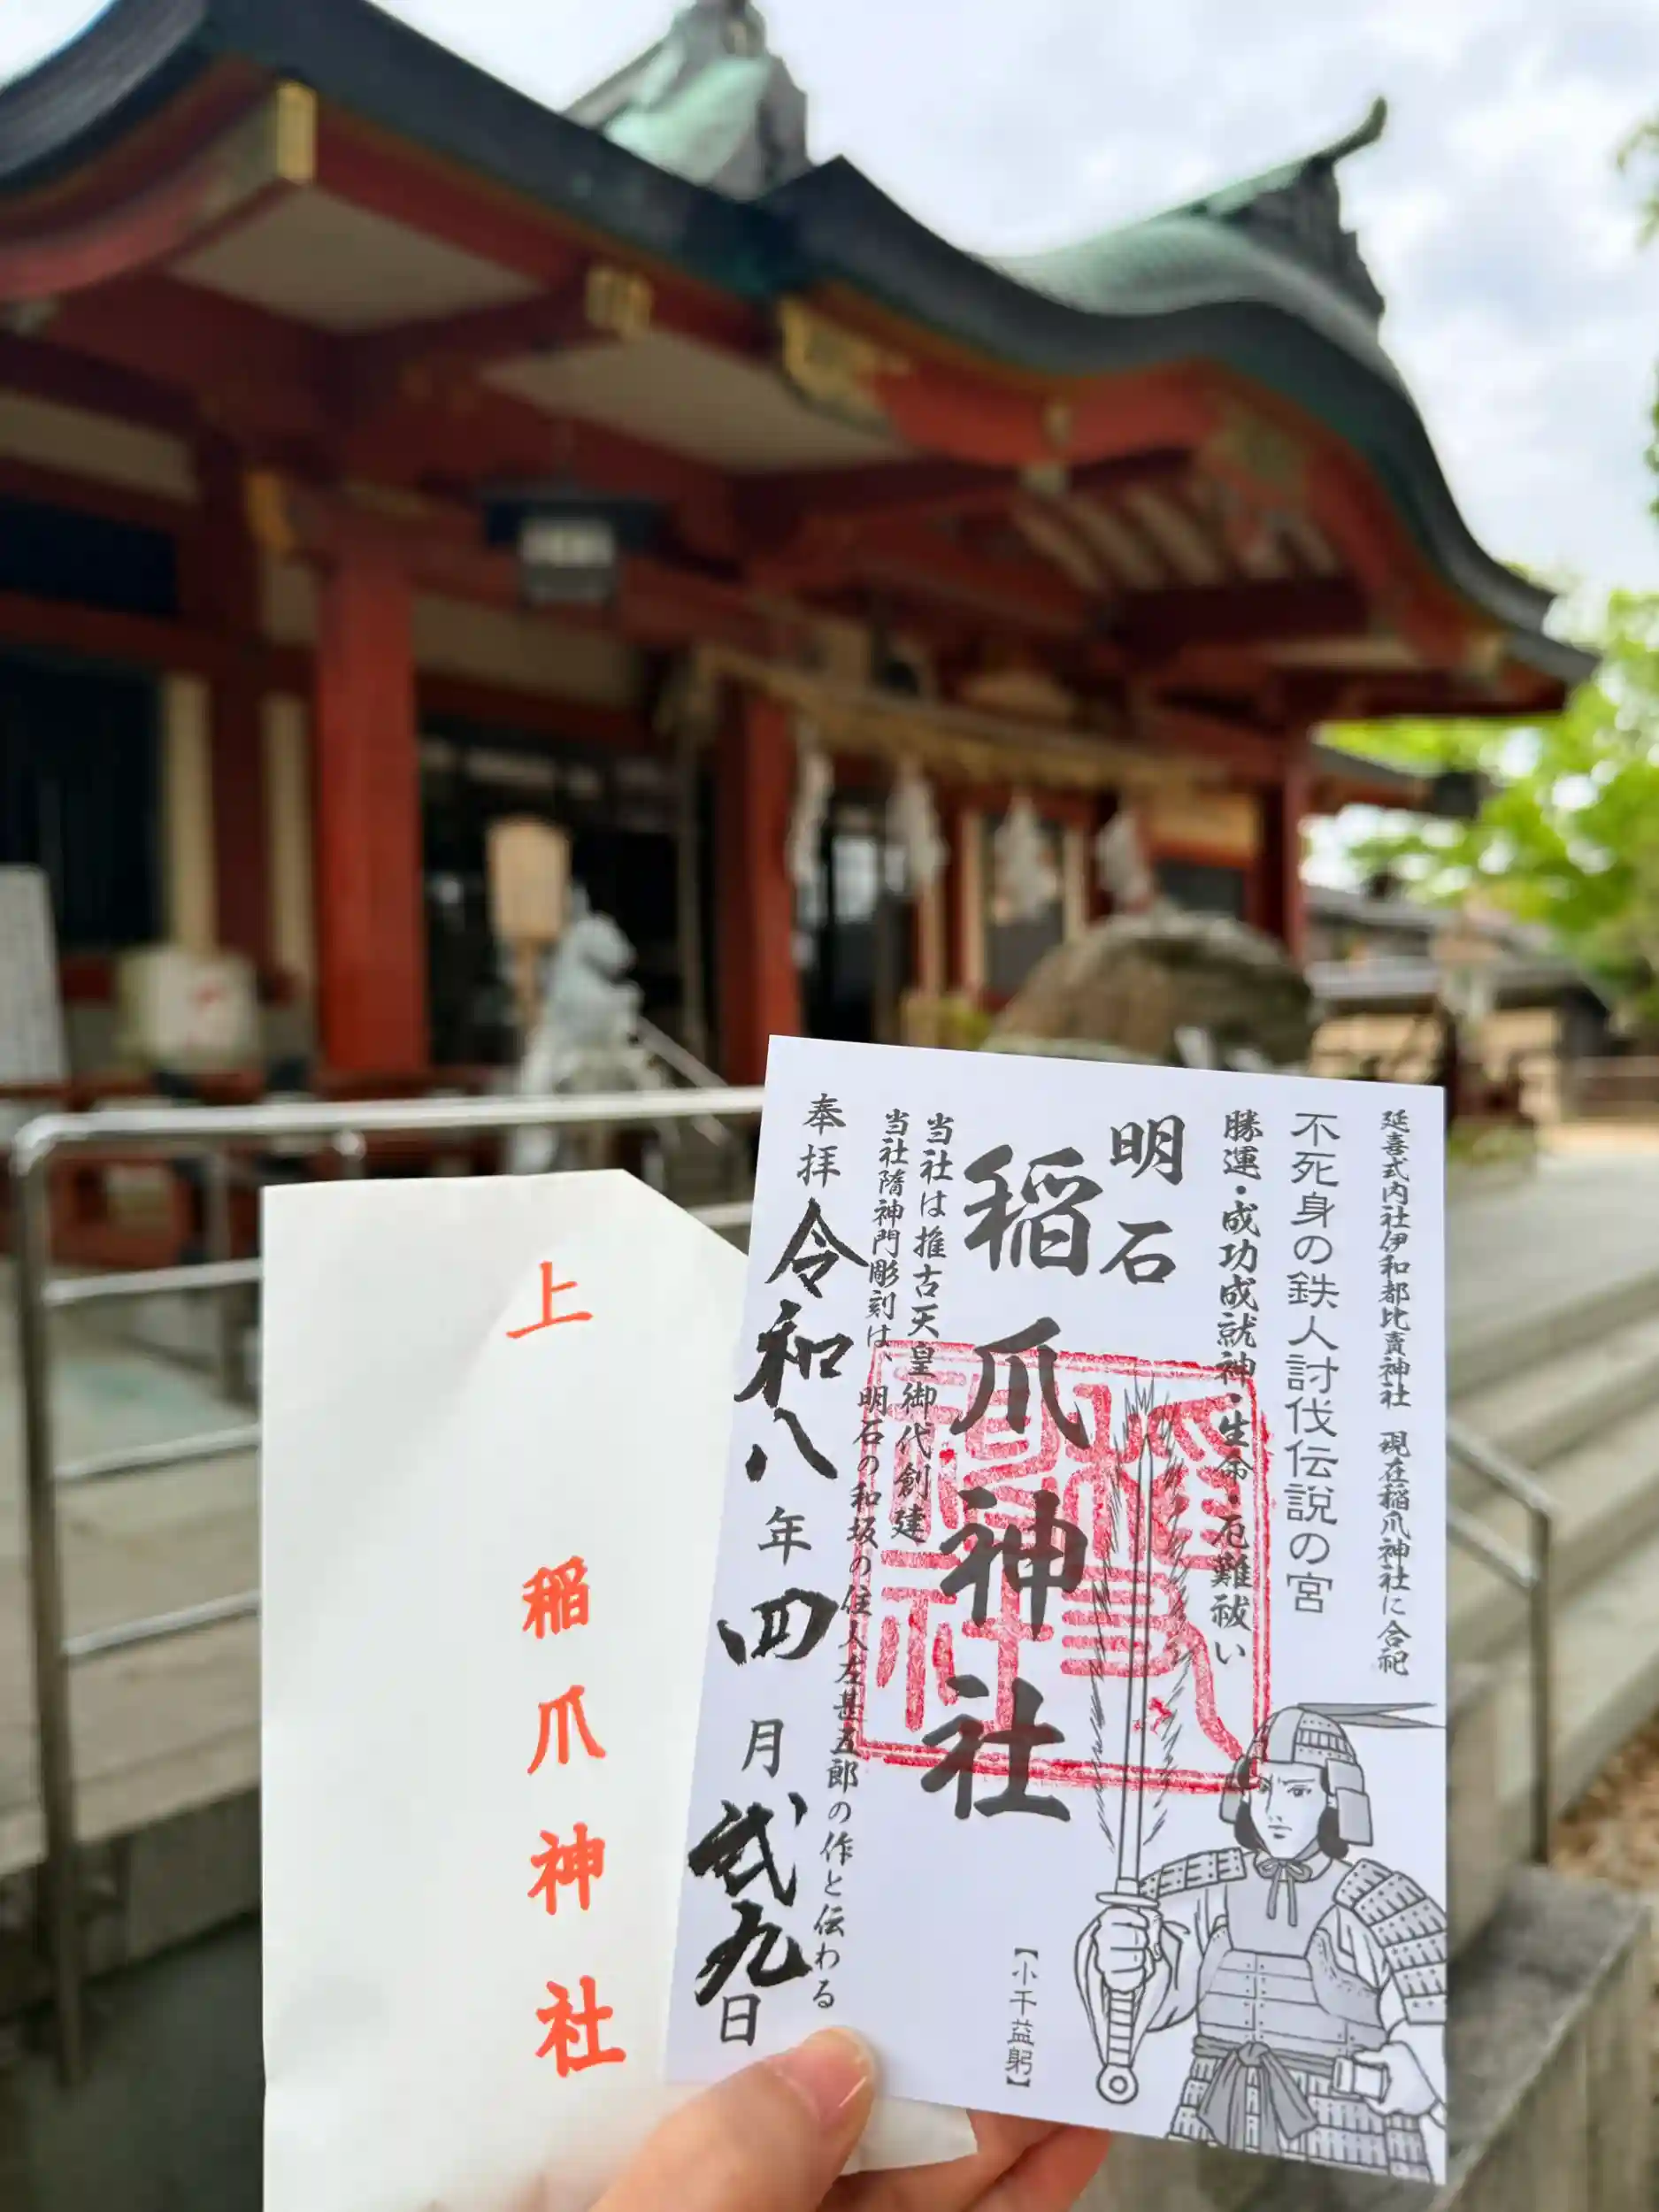 延喜式内社伊和都比賣神社 現在稲爪神社に合祀
不死身の鉄人討伐伝説の宮
勝運・成功成就神・生命・厄難祓い
明石
稲爪神社
当社は推古天皇御代創建
当社隋神門彫刻は、明石の和坂の住人左甚五郎の作と伝わる
奉拝 令和八年四月弐九日
【小千益躬】
上 稲爪神社